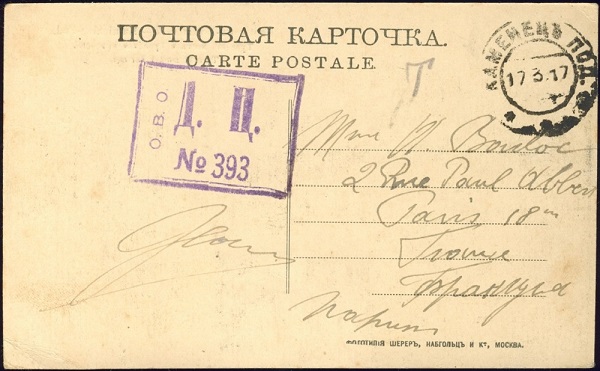 ПОЧТОВАЯ КАРТОЧКА.
CARTE POSTALE.
Т
КАМЕНЕЦЪ ПОД.
17 3.17
О.В.О
Д. Ц.
№ 393
Mme
2 Rue Paul Albert
Paris 18me
France
Франция
Париж
ФОТОТИПІЯ ШЕРЕРЪ, НАБГОЛЬЦЪ И Кº, МОСКВА.